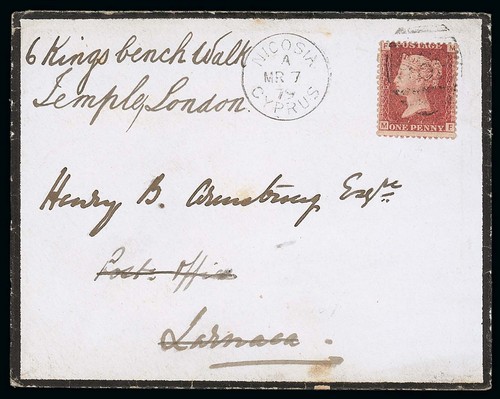 6 Kings bench Walk
Temple, London.
NICOSIA
A
MR 7
79
CYPRUS
POSTAGE
ONE PENNY
M E
Henry B. Armstrong Esqre
Post Office
Larnaca.